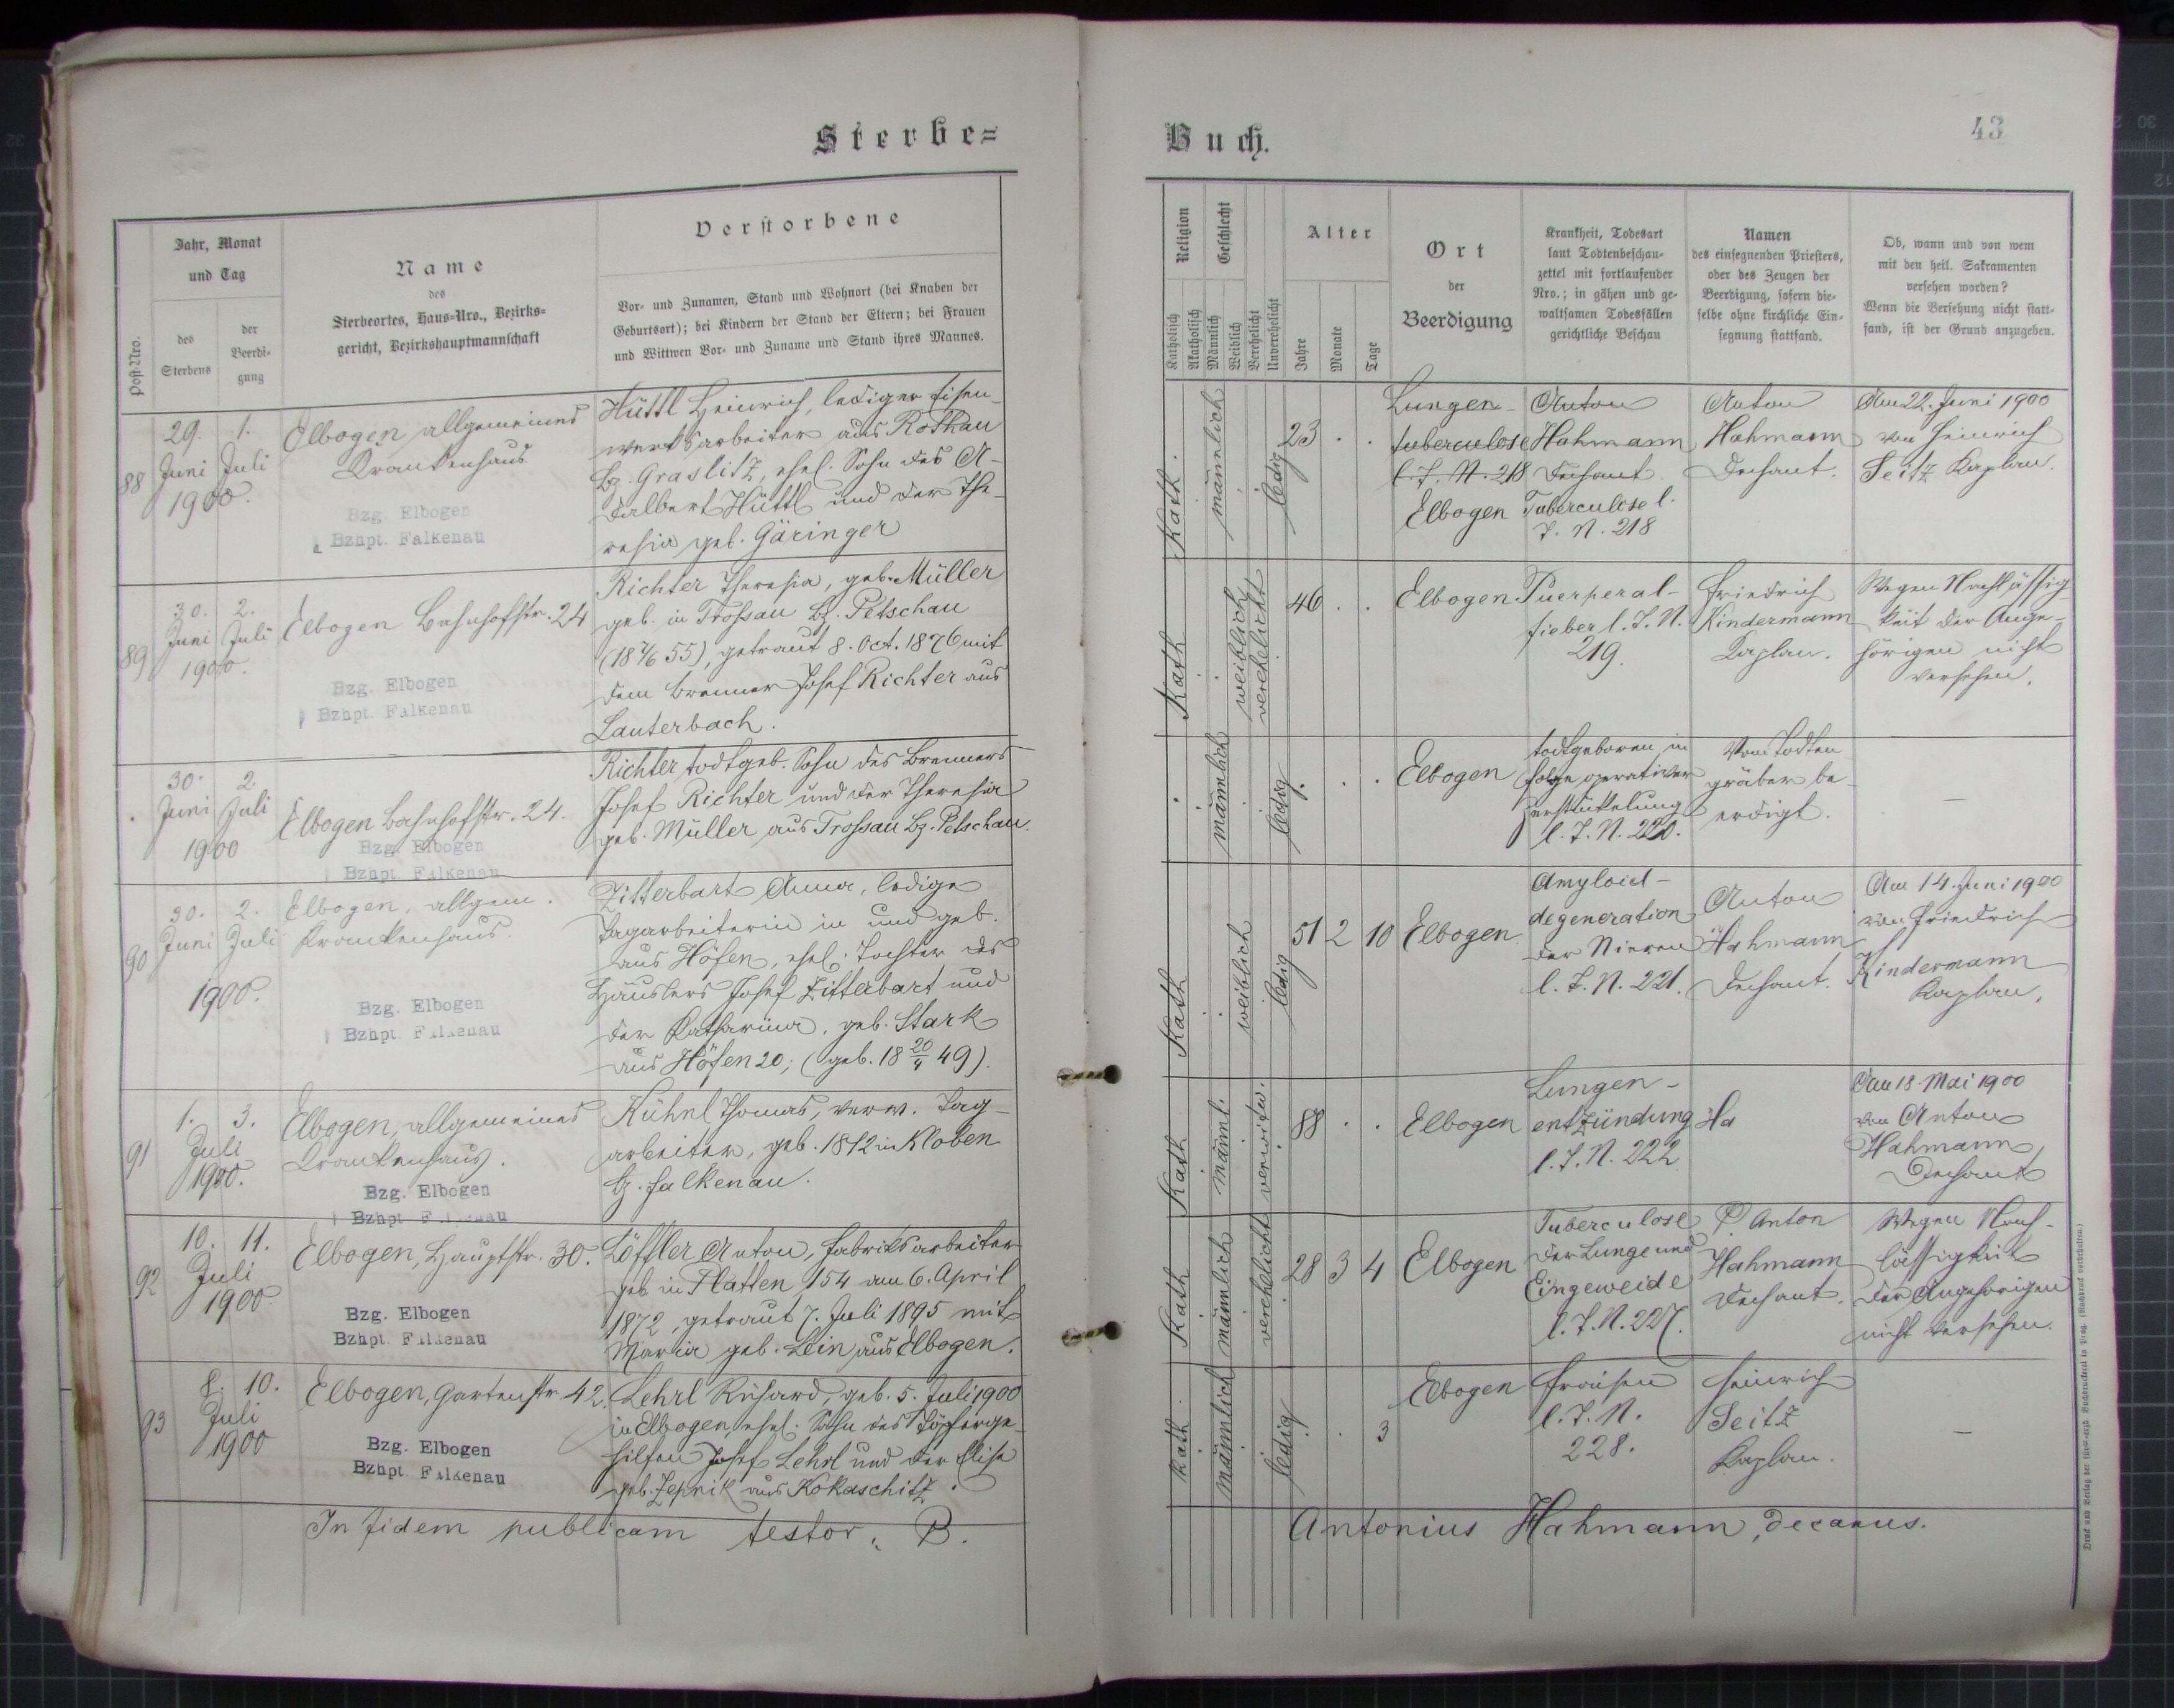 Sterbe=
Buch.
43
Post-Nro.
Jahr, Monat
und Tag
des
Sterbens
der
Beerdi-
gung
Name
des
Sterbeortes, Haus-Nro., Bezirks-
gericht, Bezirkshauptmannschaft
Verstorbene
Vor- und Zunamen, Stand und Wohnort (bei Knaben der
Geburtsort); bei Kindern der Stand der Eltern; bei Frauen
und Wittwen Vor- und Zuname und Stand ihres Mannes.
Religion
Katholisch
Akatholisch
Geschlecht
Männlich
Weiblich
Verehelicht
Unverehelicht
Alter
Jahre
Monate
Tage
Ort
der
Beerdigung
Krankheit, Todesart
laut Todtenbeschau-
zettel mit fortlaufender
Nro.; in gähen und ge-
waltsamen Todesfällen
gerichtliche Beschau
Namen
des einsegnenden Priesters,
oder des Zeugen der
Beerdigung, sofern die-
selbe ohne kirchliche Ein-
segnung stattfand.
Ob, wann und von wem
mit den heil. Sakramenten
versehen worden?
Wenn die Versehung nicht statt-
fand, ist der Grund anzugeben.
88
29. 1.
Juni Juli
1900.
Elbogen allgemeines
Krankenhaus
Bzg. Elbogen
Bzhpt. Falkenau
Hüttl Heinrich, lediger Eisen-
werksarbeiter aus Rothau
Bz. Graslitz, ehel. Sohn des A-
dalbert Hüttl und der The-
resia geb. Gäringer
Kath.
männlich
ledig
23 . .
Lungen-
tuberculose
l. T. N. 218
Elbogen
Anton
Hahmann
Dechant
Tuberculose l.
T. N. 218
Anton
Hahmann
Dechant.
Am 22. Juni 1900
von Heinrich
Seitz Kaplan.
89
30. 2.
Juni Juli
1900.
Elbogen Bahnhofstr. 24
Bzg. Elbogen
Bzhpt. Falkenau
Richter Theresia, geb. Müller
geb. in Trossau Bz. Petschau
getraut 8. Oct. 1876 mit
dem Brenner Josef Richter aus
Lauterbach.
Kath
weiblich
verehelicht
46 . .
Elbogen
Puerperal-
fieber l. T. N.
219.
Friedrich
Kindermann
Kaplan.
Wegen Nachlässig-
keit der Ange-
hörigen nicht
versehen.
30. 2.
Juni Juli
1900
Elbogen Bahnhofstr. 24.
Bzg. Elbogen
Bzhpt. Falkenau
Richter todtgeb. Sohn des Brenners
Josef Richter und der Theresia
geb. Müller aus Trossau Bz. Petschau.
männlich
ledig
. . .
Elbogen
todtgeboren in
folge operativer
Zerstückelung
l. T. N. 220.
Vom Todten
gräber be-
erdigt.
—
90
30. 2.
Juni Juli
1900.
Elbogen, allgem.
Krankenhaus.
Bzg. Elbogen
Bzhpt. Falkenau
Zitterbart Anna, ledige
Tagarbeiterin in und geb.
aus Höfen, ehel. Tochter des
Häuslers Josef Zitterbart und
der Katharina, geb. Stark
aus Höfen 20; (geb. 18 20/4 49).
Kath
weiblich
ledig
51 2 10
Elbogen
Amyloid-
degeneration
der Nieren
l. T. N. 221.
Anton
Hahmann
Dechant.
Am 14. Juni 1900
von Friedrich
Kindermann
Kaplan.
91
1. 3.
Juli
1900.
Elbogen, allgemeines
Krankenhaus.
Bzg. Elbogen
Bzhpt. Falkenau
Kühnl Thomas, verw. Tag-
arbeiter, geb. 1812 in Kloben
Bz. Falkenau.
Kath
männl.
verwitw.
88 . .
Elbogen
Lungen-
entzündung
l. T. N. 222
Ha
Am 18. Mai 1900
von Anton
Hahmann
Dechant
92
10. 11.
Juli
1900
Elbogen, Hauptstr. 30.
Bzg. Elbogen
Bzhpt. Falkenau
Löffler Anton, Fabriksarbeiter
geb. in Platten 154 am 6. April
1872, getraut 7. Juli 1895 mit
Maria geb. Lein aus Elbogen.
Kath
männlich
verehelicht
28 3 4
Elbogen
Tuberculose
der Lunge und
Eingeweide
l. T. N. 227.
P. Anton
Hahmann
Dechant.
Wegen Nach-
lässigkeit
der Angehörigen
nicht versehen.
93
8. 10.
Juli
1900
Elbogen, Gartenstr. 42.
Bzg. Elbogen
Bzhpt. Falkenau
Lehrl Richard, geb. 5. Juli 1900
in Elbogen, ehel. Sohn des Töpferge-
hilfen Josef Lehrl und der Elise
geb. aus Kokaschitz.
kath.
männlich
ledig
. . 3
Elbogen
Fraisen
l. T. N.
228.
Heinrich
Seitz
Kaplan.
—
In fidem publicam testor. B.
Antonius Hahmann, decanus.